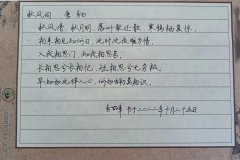 秋风词 李白
秋风清，秋月明，落叶聚还散，寒鸦栖复惊。
相亲相见知何日，此时此夜难为情。
入我相思门，知我相思苦。
长相思兮长相忆，短相思兮无穷极。
早知如此绊人心，何如当初莫相识。
书于二〇二二年十月二十五日